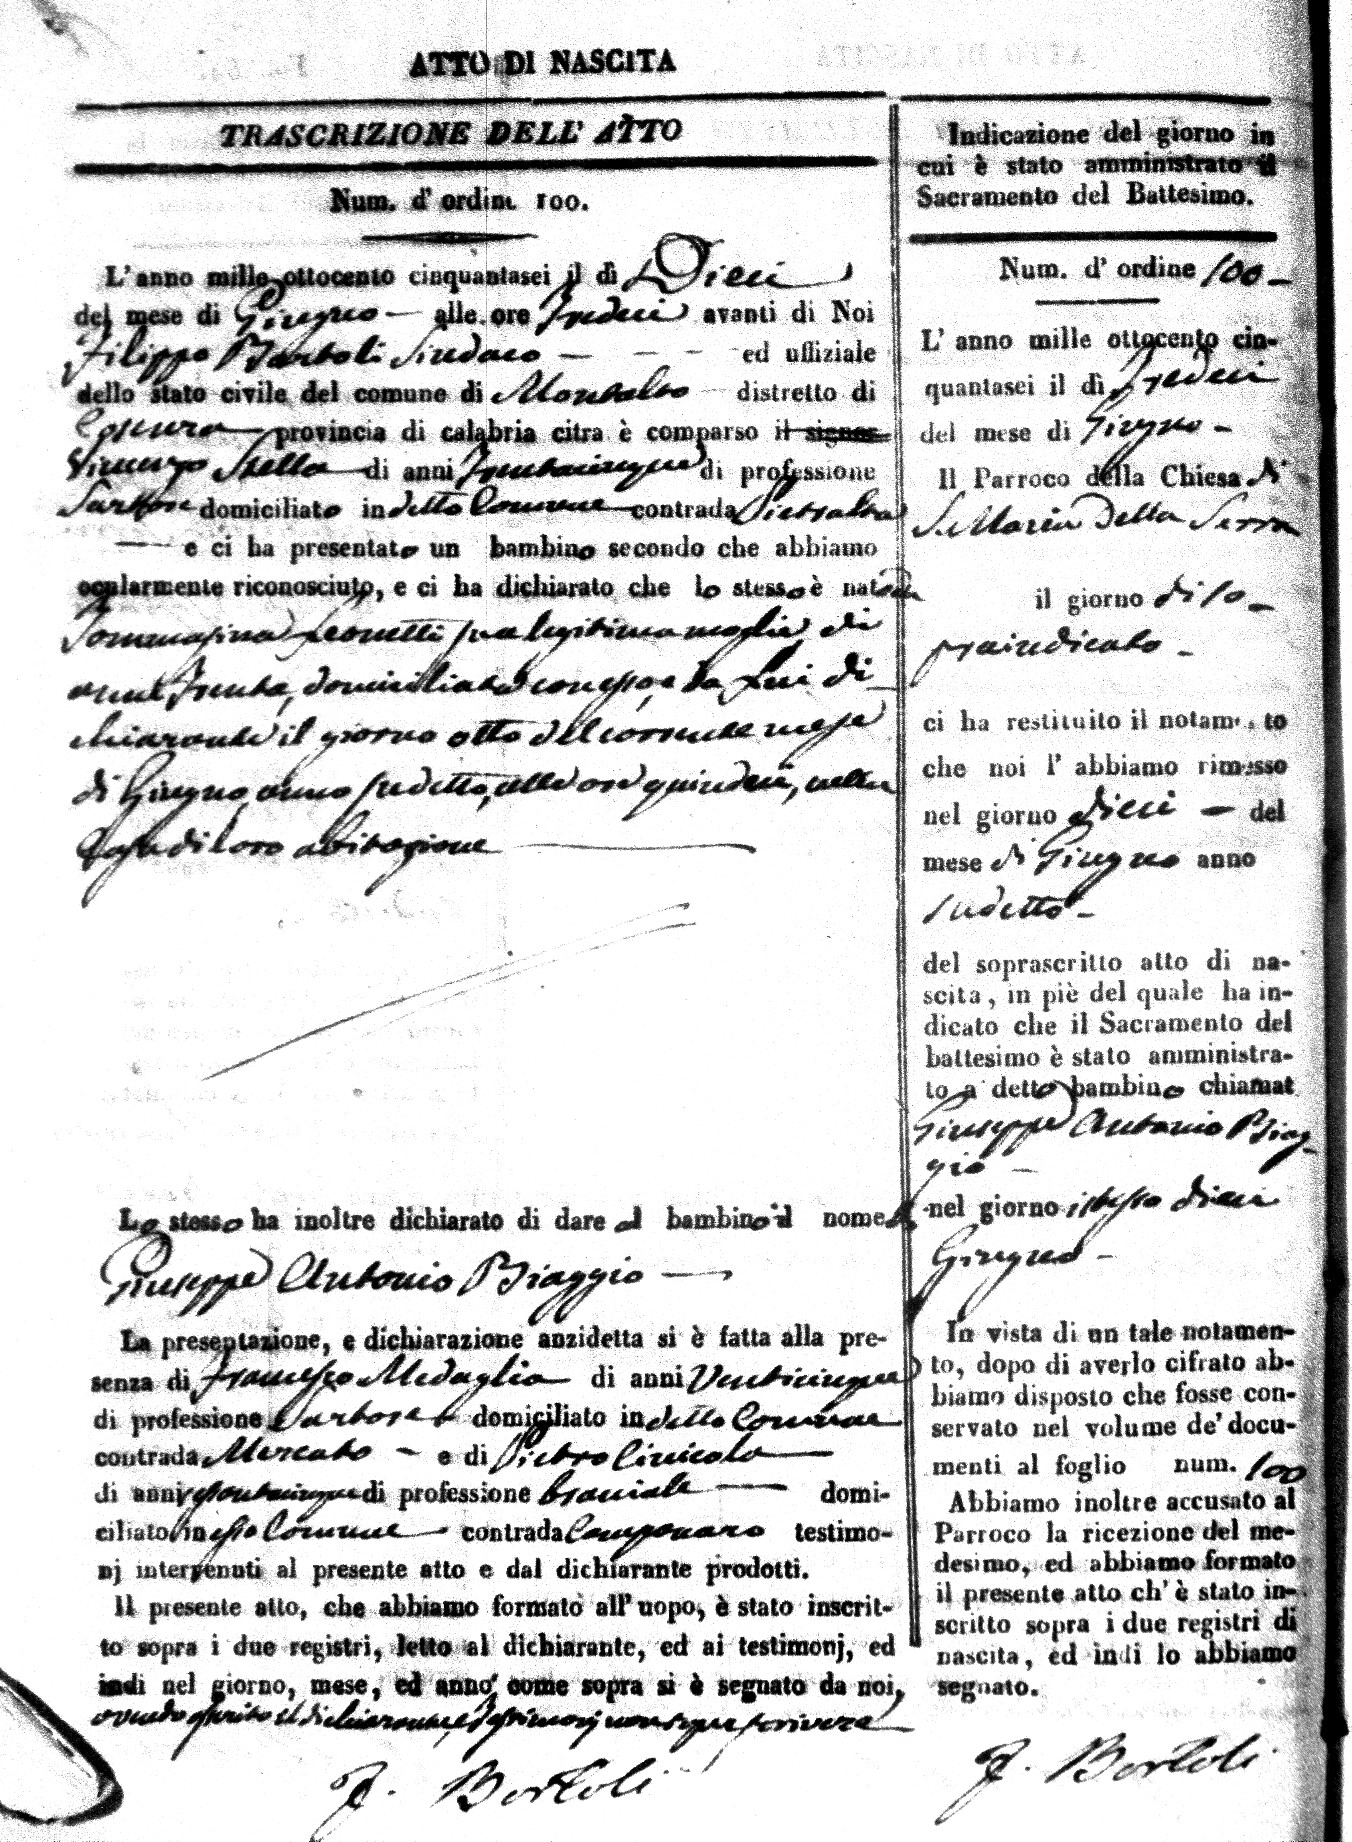 ATTO DI NASCITA
TRASCRIZIONE DELL' ATTO
Num. d' ordine 100.
L' anno mille ottocento cinquantasei il dì Dieci
del mese di Giugno — alle ore Tredici avanti di Noi
Filippo Bartoli Sindaco — — — ed uffiziale
dello stato civile del comune di Montalto distretto di
Cosenza provincia di calabria citra è comparso il signor
Vincenzo Stella di anni Trentacinque di professione
Sartore domiciliato in detto Comune contrada Pietralta
— e ci ha presentato un bambino secondo che abbiamo
ocularmente riconosciuto, e ci ha dichiarato che lo stesso è nato da
Tommasina Leonetti sua legitima moglie, di
anni Trenta, domiciliata con esso, e da Lui di
chiarante il giorno otto del corrente mese
di Giugno, anno sudetto, alle ore quindeci, nella
Casa di loro abitazione
Lo stesso ha inoltre dichiarato di dare al bambino il nome di
Giuseppe Antonio Biaggio —
La presentazione, e dichiarazione anzidetta si è fatta alla pre-
senza di Francesco Medaglia di anni Venticinque
di professione Sartore domiciliato in detto Comune
contrada Mercato — e di Pietro
di anni di professione — domi-
ciliato in esso Comune contrada testimo-
nj intervenuti al presente atto e dal dichiarante prodotti.
Il presente atto, che abbiamo formato all' uopo, è stato inscrit-
to sopra i due registri, letto al dichiarante, ed ai testimonj, ed
indi nel giorno, mese, ed anno come sopra si è segnato da noi,
avendo asserito il dichiarante, e Testimonj non saper scrivere
F. Bartoli
Indicazione del giorno in
cui è stato amministrato il
Sacramento del Battesimo.
Num. d' ordine 100 -
L' anno mille ottocento cin-
quantasei il dì Tredeci
del mese di Giugno -
Il Parroco della Chiesa di
S. Maria della Serra
il giorno di so-
praindicato -
ci ha restituito il notamento
che noi l' abbiamo rimesso
nel giorno dieci — del
mese di Giugno anno
sudetto -
del soprascritto atto di na-
scita, in piè del quale ha in-
dicato che il Sacramento del
battesimo è stato amministra-
to a detto bambino chiamat
Giuseppe Antonio Biag-
gio —
nel giorno istesso dieci
Giugno -
In vista di un tale notamen-
to, dopo di averlo cifrato ab-
biamo disposto che fosse con-
servato nel volume de' docu-
menti al foglio num. 100
Abbiamo inoltre accusato al
Parroco la ricezione del me-
desimo, ed abbiamo formato
il presente atto ch' è stato in-
scritto sopra i due registri di
nascita, ed indi lo abbiamo
segnato.
F. Bartoli